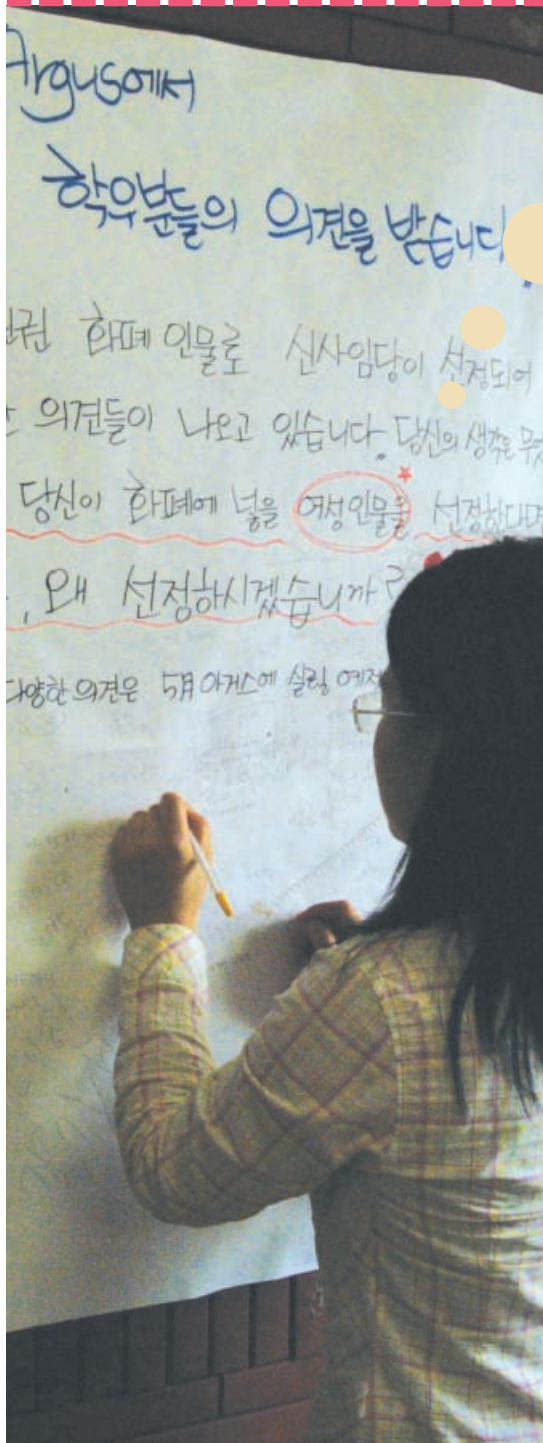 Argus에서
학우분들의 의견을 받습니다
화폐 인물로 신사임당이 선정되어
의견들이 나오고 있습니다. 당신의 생각은
당신이 화폐에 넣을 여성인물을 선정한다면
, 왜 선정하시겠습니까?
다양한 의견은 5月 아거스에 실릴